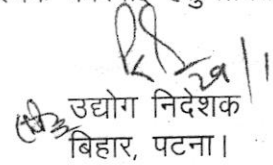 29/1
उद्योग निदेशक
बिहार, पटना।